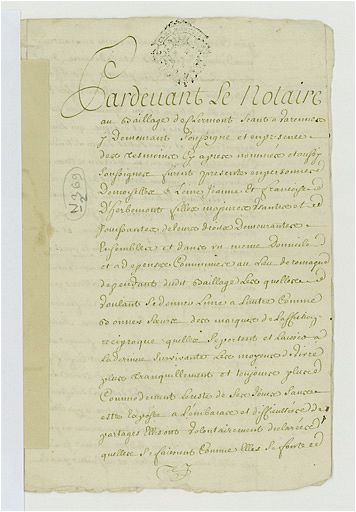 Pardevant Le Notaire
au Bailliage de Clermont Seant a Varennes
y Demeurant Soussigne et en presence
des tesmoins Cy apres nommés et aussy
Soussignes furent presente en personnes
Demoyselles Jeanne Et francoise
D'herbemont filles majeures usantes et
Jouissantes de leurs droits demeurantes
Ensembles et dans un mesme Domicile
et a depenses Communes au Lieu de romagne
dependant dudit Bailliage Lesquelles
Voulant Se donner L'une a L'autre Comme
bonnes Sœurs des marques de L'affection
reciproque quelles Se portent et Laisser a
La derniere Survivante Les moyens de vivre
plus tranquillement et toujours plus
Commodement Le reste de Ses Jours Sans
estre Exposée a L'embaras et difficultés de
partages Elles ont Volontairement declarées
quelles Se faisoient Comme Elles Se font
N 369